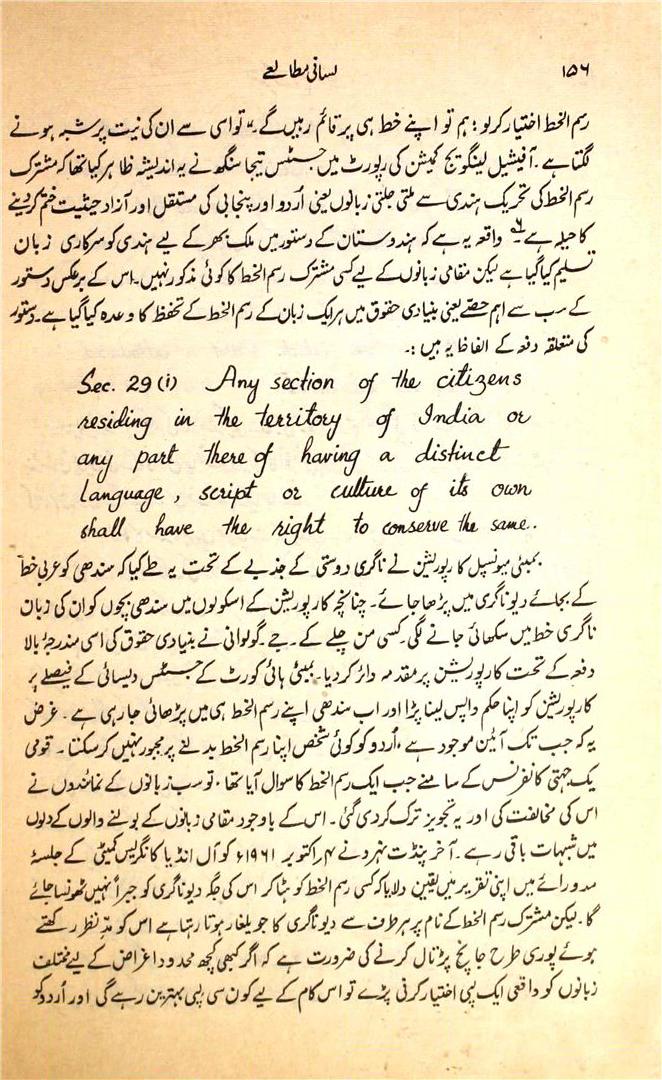 ۱۵۶
لسانی مطالعے
رسم الخط اختیار کر لو؛ ہم تو اپنے خط ہی پر قائم رہیں گے۔" تو اسی سے ان کی نیت پر شبہ ہونے
لگتا ہے۔ آفیشیل لینگویج کمیشن کی رپورٹ میں جسٹس تیجا سنگھ نے یہ اندیشہ ظاہر کیا تھا کہ مشترک
رسم الخط کی تحریک ہندی سے ملتی جلتی زبانوں یعنی اُردو اور پنجابی کی مستقل اور آزاد حیثیت ختم کر دینے
کا حیلہ ہے۔ واقعہ یہ ہے کہ ہندوستان کے دستور میں ملک بھر کے لیے ہندی کو سرکاری زبان
تسلیم کیا گیا ہے لیکن مقامی زبانوں کے لیے کسی مشترک رسم الخط کا کوئی مذکور نہیں۔ اس کے برعکس دستور
کے سب سے اہم حصے یعنی بنیادی حقوق میں ہر ایک زبان کے رسم الخط کے تحفظ کا وعدہ کیا گیا ہے۔ دستور
کی متعلقہ دفعہ کے الفاظ یہ ہیں :۔
Sec. 29 (i) Any section of the citizens
residing in the territory of India or
any part there of having a distinct
Language, script or culture of its own
shall have the right to conserve the same..
بمبئی میونسپل کارپوریشن نے ناگری دوستی کے جذبے کے تحت یہ طے کیا کہ سندھی کو عربی خط
کے بجائے دیوناگری میں پڑھا جائے۔ چنانچہ کارپوریشن کے اسکولوں میں سندھی بچوں کو ان کی زبان
ناگری خط میں سکھائی جانے لگی۔ کسی من چلے کے۔ جے۔ گولوانی نے بنیادی حقوق کی اسی مندرجۂ بالا
دفعہ کے تحت کارپوریشن پر مقدمہ دائر کر دیا۔ بمبئی ہائی کورٹ کے جسٹس دیسائی کے فیصلے پر
کارپوریشن کو اپنا حکم واپس لینا پڑا اور اب سندھی اپنے رسم الخط ہی میں پڑھائی جا رہی ہے۔ غرض
یہ کہ جب تک آئین موجود ہے، اُردو کو کوئی شخص اپنا رسم الخط بدلنے پر مجبور نہیں کر سکتا۔ قومی
یک جہتی کانفرنس کے سامنے جب ایک رسم الخط کا سوال آیا تھا، تو سب زبانوں کے نمائندوں نے
اس کی مخالفت کی اور یہ تجویز ترک کر دی گئی۔ اس کے باوجود مقامی زبانوں کے بولنے والوں کے دلوں
میں شبہات باقی رہے۔ آخر پنڈت نہرو نے ۴؍اکتوبر ۱۹۶۱ء کو آل انڈیا کانگریس کمیٹی کے جلسۂ
مدورائے میں اپنی تقریر میں یقین دلایا کہ کسی رسم الخط کو ہٹا کر اس کی جگہ دیوناگری کو جبراً نہیں ٹھونسا جائے
گا۔ لیکن مشترک رسم الخط کے نام پر ہر طرف سے دیوناگری کا جو یلغار ہوتا رہتا ہے اس کو مدِّ نظر رکھتے
ہوئے پوری طرح جانچ پڑتال کرنے کی ضرورت ہے کہ اگر کبھی کچھ محدود اغراض کے لیے مختلف
زبانوں کو واقعی ایک لپی اختیار کرنی پڑے تو اس کام کے لیے کون سی لپی بہترین رہے گی اور اُردو کو